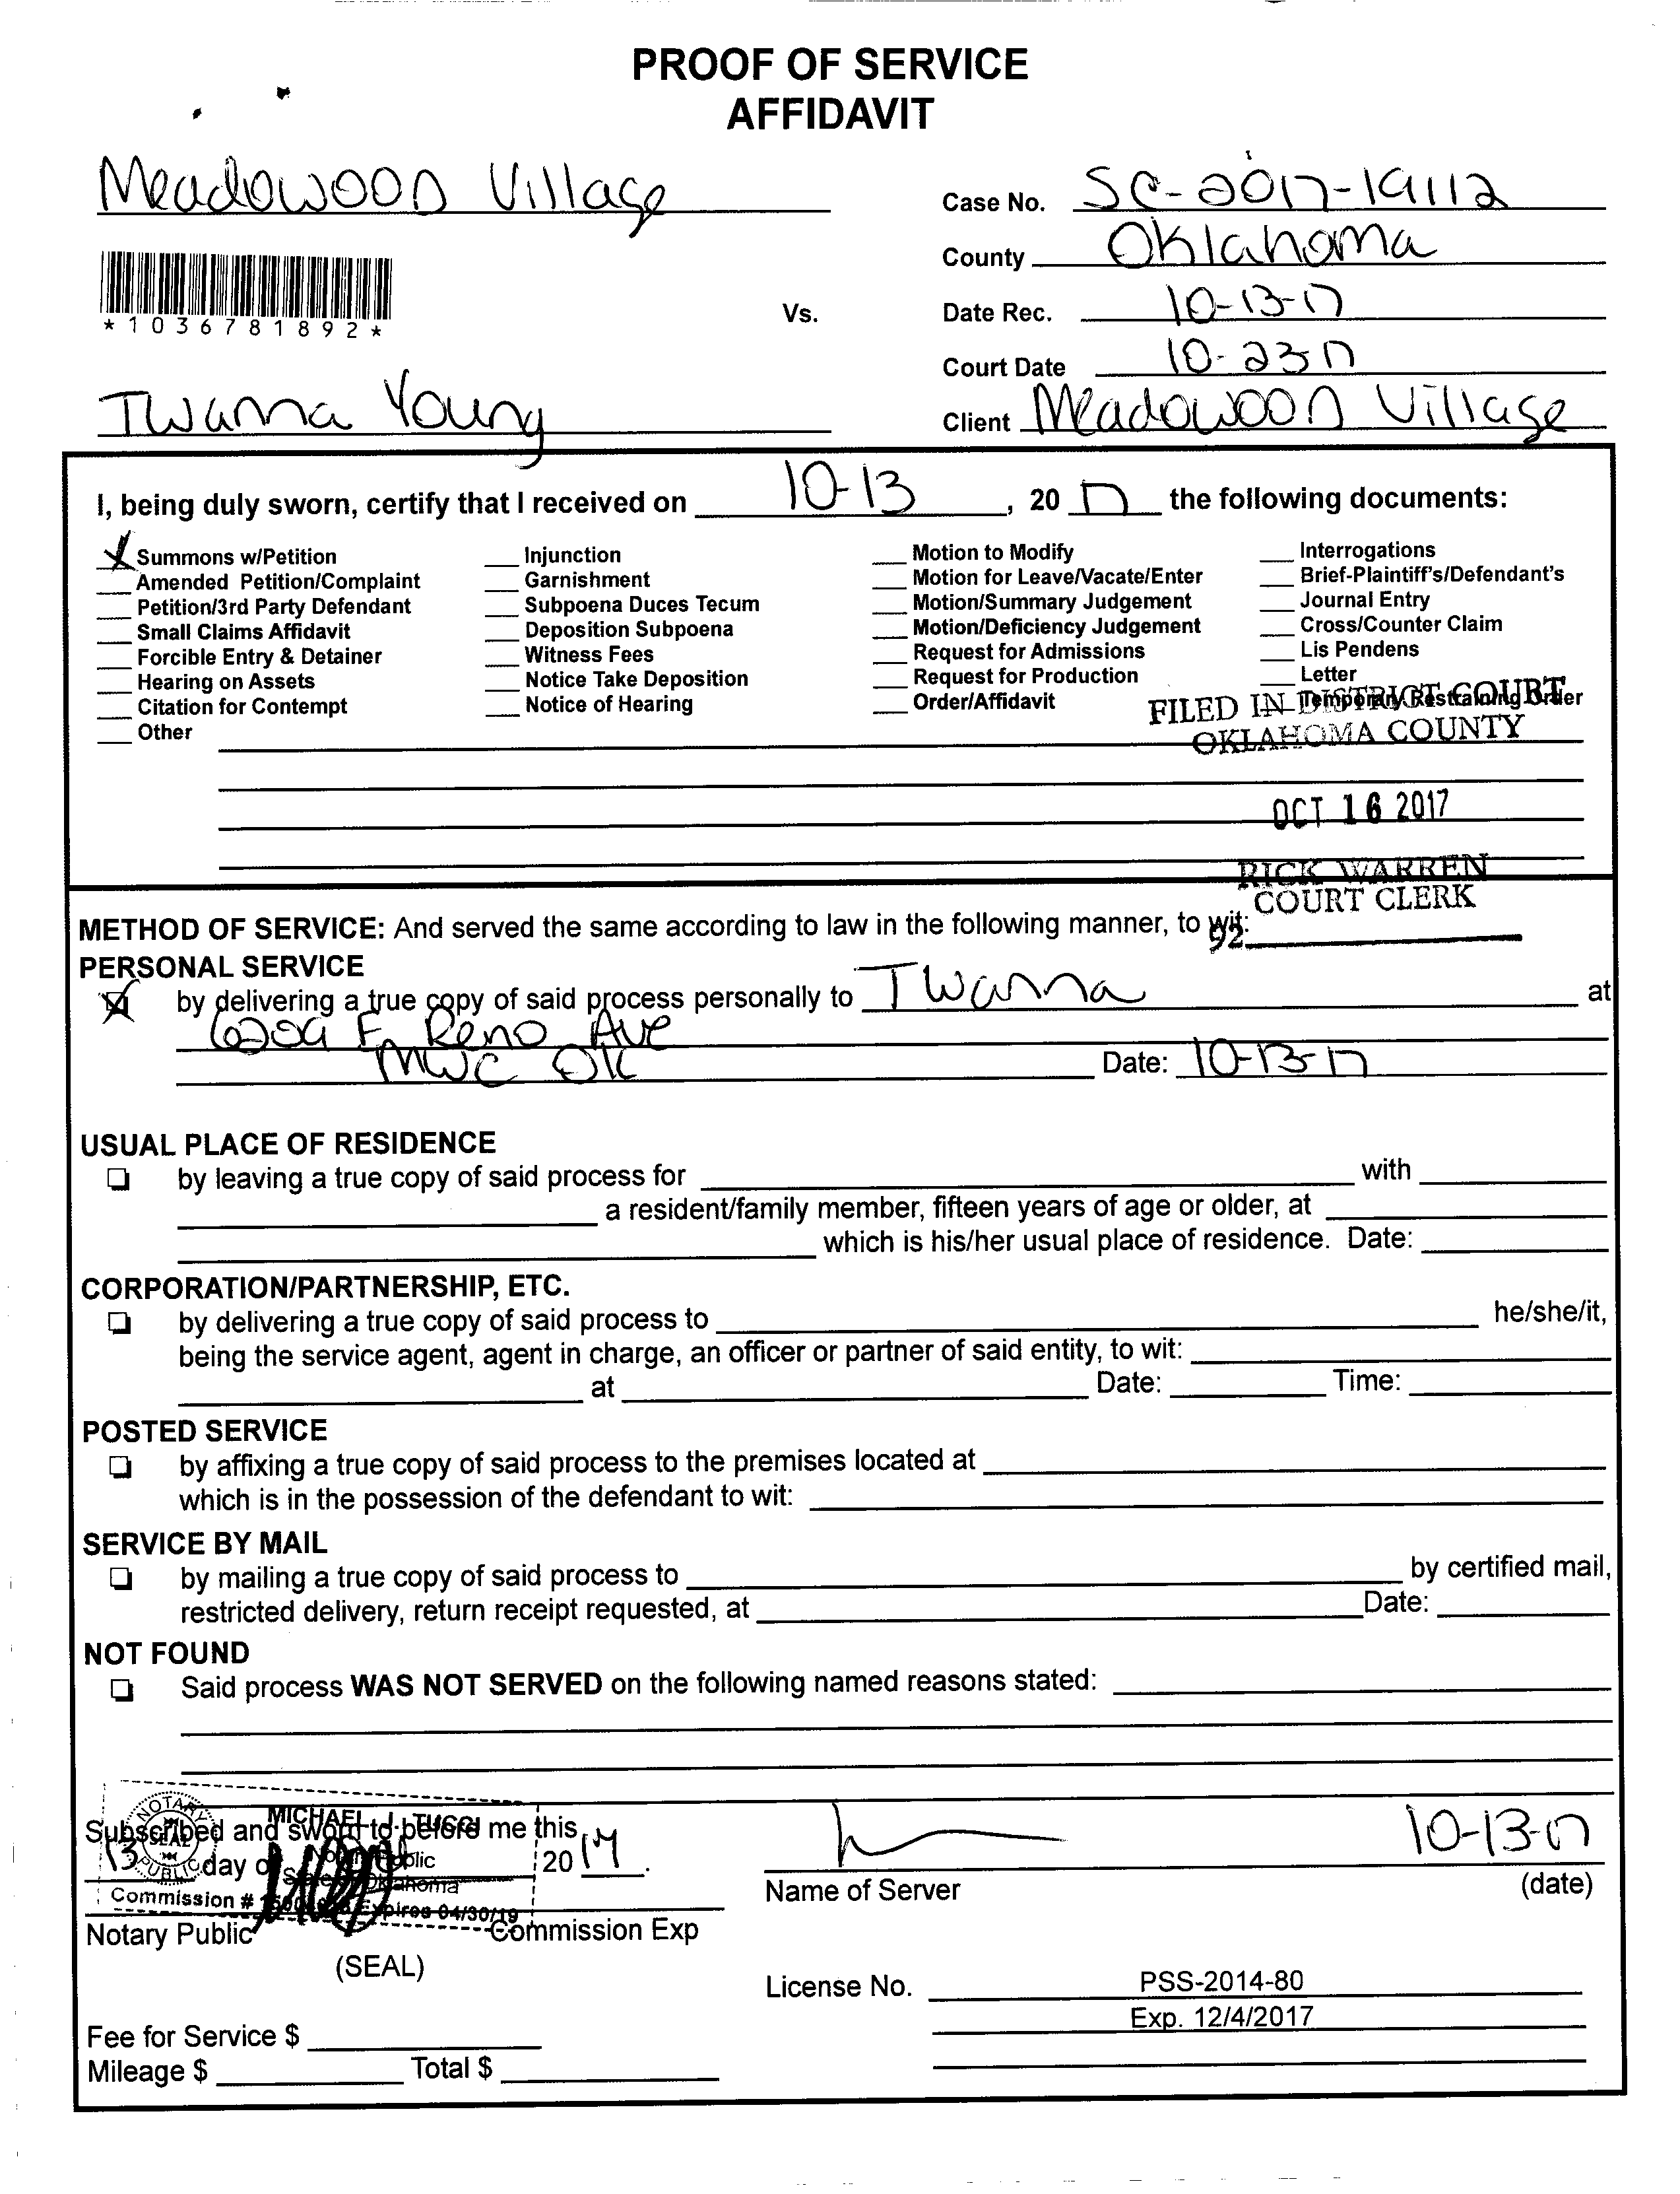 PROOF OF SERVICE
AFFIDAVIT
Meadowood Village
Case No. SC-2017-19112
County Oklahoma
*1036781892*
Vs.
Date Rec. 10-13-17
Court Date 10-23-17
Twanna Young
Client Meadowood Village
I, being duly sworn, certify that I received on 10-13, 20 17 the following documents:
X Summons w/Petition
Amended Petition/Complaint
Petition/3rd Party Defendant
Small Claims Affidavit
Forcible Entry & Detainer
Hearing on Assets
Citation for Contempt
Other
Injunction
Garnishment
Subpoena Duces Tecum
Deposition Subpoena
Witness Fees
Notice Take Deposition
Notice of Hearing
Motion to Modify
Motion for Leave/Vacate/Enter
Motion/Summary Judgement
Motion/Deficiency Judgement
Request for Admissions
Request for Production
Order/Affidavit
Interrogations
Brief-Plaintiff's/Defendant's
Journal Entry
Cross/Counter Claim
Lis Pendens
Letter
Temporary Restraining Order
FILED IN DISTRICT COURT
OKLAHOMA COUNTY
OCT 16 2017
RICK WARREN
COURT CLERK
92
METHOD OF SERVICE: And served the same according to law in the following manner, to wit:
PERSONAL SERVICE
X by delivering a true copy of said process personally to Twanna at
6209 E Reno Ave
MWC OK Date: 10-13-17
USUAL PLACE OF RESIDENCE
by leaving a true copy of said process for with
a resident/family member, fifteen years of age or older, at
which is his/her usual place of residence. Date:
CORPORATION/PARTNERSHIP, ETC.
by delivering a true copy of said process to he/she/it,
being the service agent, agent in charge, an officer or partner of said entity, to wit:
at Date: Time:
POSTED SERVICE
by affixing a true copy of said process to the premises located at
which is in the possession of the defendant to wit:
SERVICE BY MAIL
by mailing a true copy of said process to by certified mail,
restricted delivery, return receipt requested, at Date:
NOT FOUND
Said process WAS NOT SERVED on the following named reasons stated:
Subscribed and sworn to before me this
13 day of 2017.
NOTARY PUBLIC
SEAL
MICHAEL J. TUCCI
Notary Public
State of Oklahoma
Commission # Expires 04/30/19
Notary Public Commission Exp
(SEAL)
10-13-17
Name of Server (date)
License No. PSS-2014-80
Exp. 12/4/2017
Fee for Service $
Mileage $ Total $